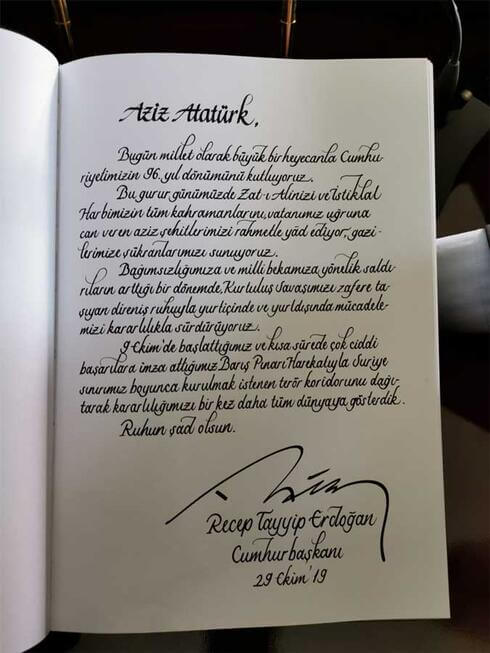 Aziz Atatürk,
Bugün millet olarak büyük bir heyecanla Cumhu-
riyetimizin 96. yıl dönümünü kutluyoruz.
Bu gurur günümüzde Zat-ı Alinizi ve İstiklal
Harbimizin tüm kahramanlarını, vatanımız uğruna
can veren aziz şehitlerimizi rahmetle yâd ediyor, gazi-
lerimize şükranlarımızı sunuyoruz.
Bağımsızlığımıza ve milli bekamıza yönelik saldı-
rıların arttığı bir dönemde, Kurtuluş Savaşımızı zafere ta-
şıyan direniş ruhuyla yurtiçinde ve yurtdışında mücadele-
mizi kararlılıkla sürdürüyoruz.
9 Ekim'de başlattığımız ve kısa sürede çok ciddi
başarılara imza attığımız Barış Pınarı Harekatıyla Suriye
sınırımız boyunca kurulmak istenen terör koridorunu dağı-
tarak kararlılığımızı bir kez daha tüm dünyaya gösterdik.
Ruhun şad olsun.
Recep Tayyip Erdoğan
Cumhurbaşkanı
29 Ekim'19